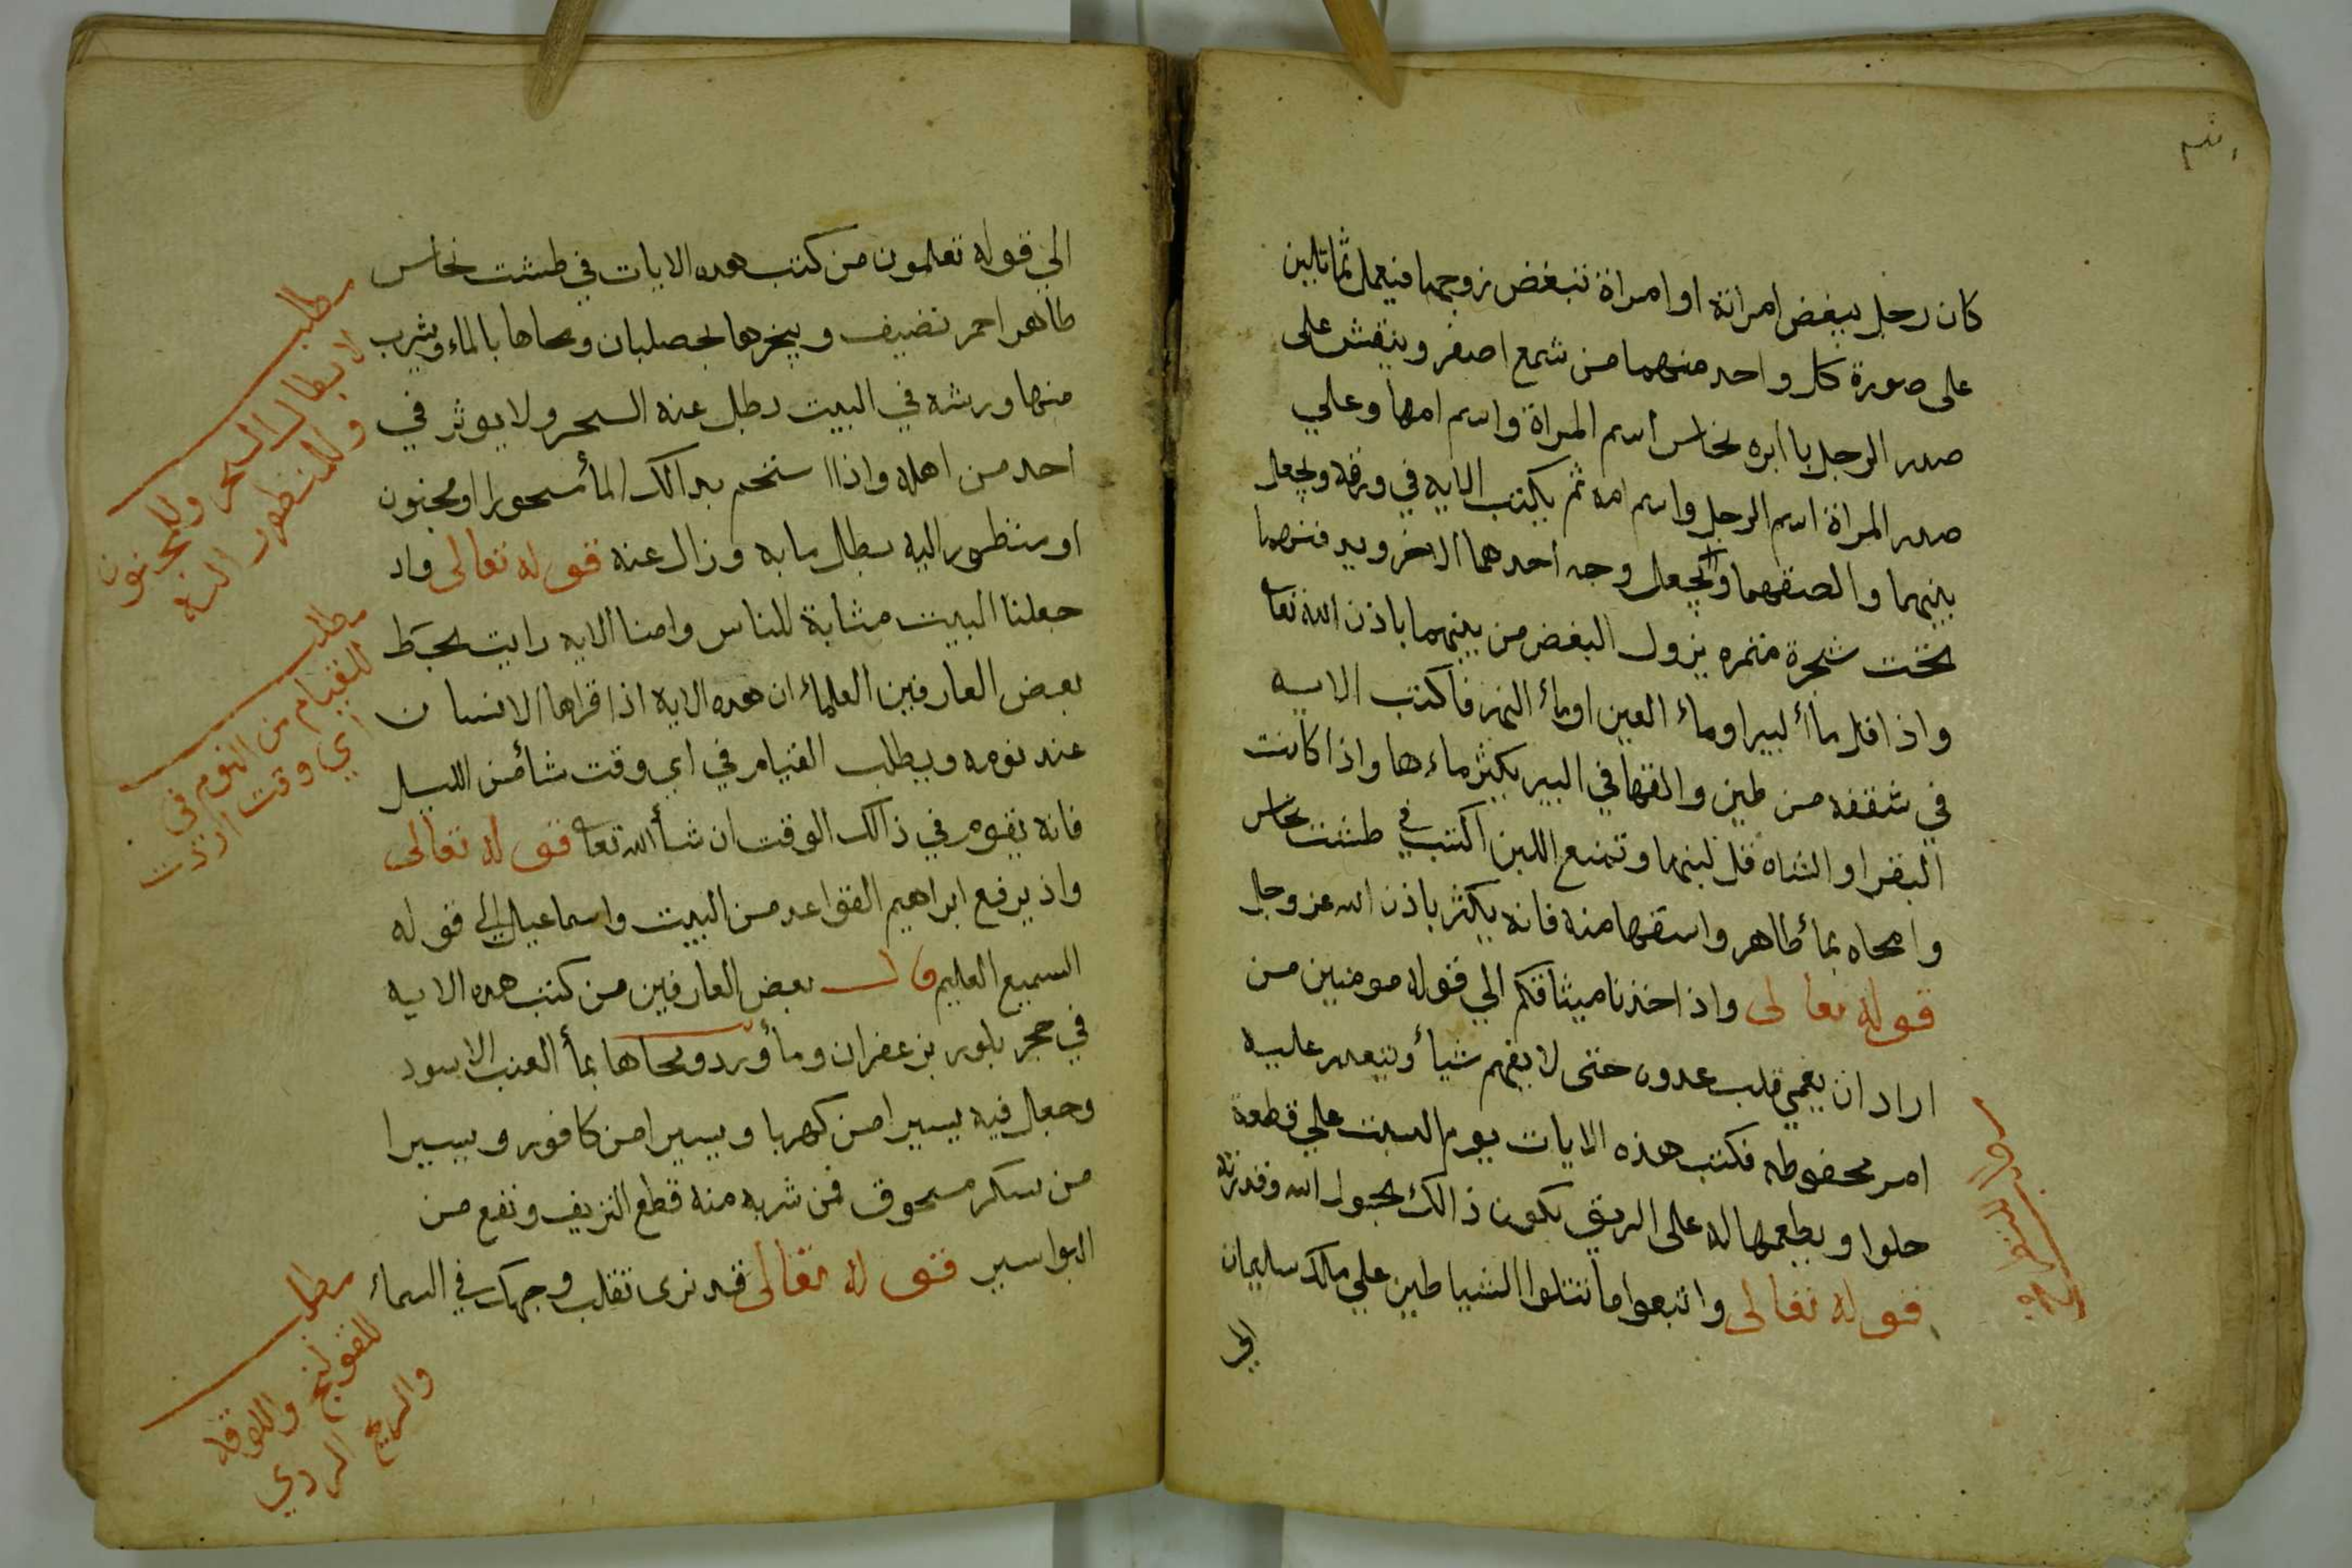 كان رجل يبغض امراته او امراة تبغض زوجها فيعمل تماثلين
على صورة كل واحد منهما من شمع اصفر وينقش على
صدر الرجل با ابره نحاس اسم المراة واسم امها وعلي
صدر المراة اسم الرجل واسم امه ثم يكتب الايه في ورقه ويجعل
بينهما والصقهما ويجعل وجه احدهما الاخر ويدفنهما
تحت شجرة مثمره يزول البغض من بينهما باذن الله تعا
واذا قل ماأ لبير اوماء العين اوماأ النهر فاكتب الايه
في شقفه من طين والقها في البير يكثر ماءها واذا كانت
البقر او الشاه قل لبنها وتمنع اللبن اكتب في طشت نحاس
وامحاه بمأ طاهر واسقها منه فانه يكثر باذن الله عز وجل
قوله تعالى واذ اخذنا ميثاقكم الي قوله مومنين من
اراد ان يعمي قلب عدوه حتى لا يفهم شيأ ويتعدر عليه
امر محفوظه فكتب هذه الايات يوم السبت علي قطعة
حلوا ويطعمها له على الريق يكون ذالك بحول الله وقدرته
قوله تعالى واتبعوا ما تتلوا الشياطين علي ملك سليمان
الي
الي قوله تعلمون من كتب هده الايات في طشت نحاس
طاهر احمر نضيف ويبخرها بحصلبان ومحاها بالماء ويشرب
منها ورشه في البيت بطل عنه السحر ولا يوثر في
احد من اهله واذا استحم بدالك المأ مسحورا او مجنون
او منظور اليه بطل ما به وزال عنه قوله تعالى واد
جعلنا البيت مثابة للناس وامنا الايه رايت بخط
بعض العارفين العلماء ان هده الايه اذا قراها الانسان
عند نومه ويطلب القيام في اي وقت شأ من الليل
فانه يقوم في ذالك الوقت ان شأ الله تعا قوله تعالى
واذ يرفع ابراهيم القواعد من البيت واسماعيل الي قوله
السميع العليم قال بعض العارفين من كتب هده الايه
في حجر بلور بزعفران ومأ ورد ومحاها بمأ العنب الاسود
وجعل فيه يسيرا من كهربا ويسيرا من كافور ويسيرا
من سكر مسحوق فمن شربه منه قطع النزيف ونفع من
البواسير قوله تعالى قد نرى تقلب وجهك في السماء
مطلب
لابطال السحر وللمجنون
وللمنظور اليه
مطلب
للقيام من النوم في
اي وقت اردت
مطلب
للقولنج واللوقه
والريح الردي